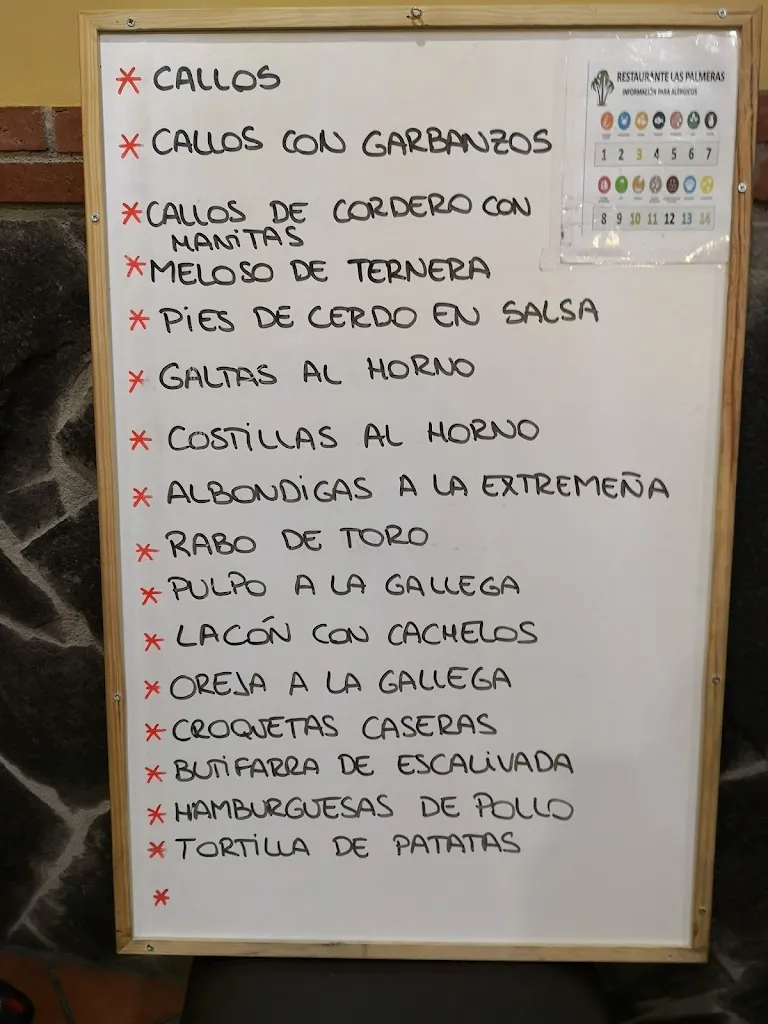 * CALLOS
RESTAURANTE LAS PALMERAS
INFORMACIÓN PARA ALÉRGICOS
* CALLOS CON GARBANZOS
1 2 3 4 5 6 7
8 9 10 11 12 13 14
* CALLOS DE CORDERO CON
MANITAS
* MELOSO DE TERNERA
* PIES DE CERDO EN SALSA
* GALTAS AL HORNO
* COSTILLAS AL HORNO
* ALBONDIGAS A LA EXTREMEÑA
* RABO DE TORO
* PULPO A LA GALLEGA
* LACÓN CON CACHELOS
* OREJA A LA GALLEGA
* CROQUETAS CASERAS
* BUTIFARRA DE ESCALIVADA
* HAMBURGUESAS DE POLLO
* TORTILLA DE PATATAS
*